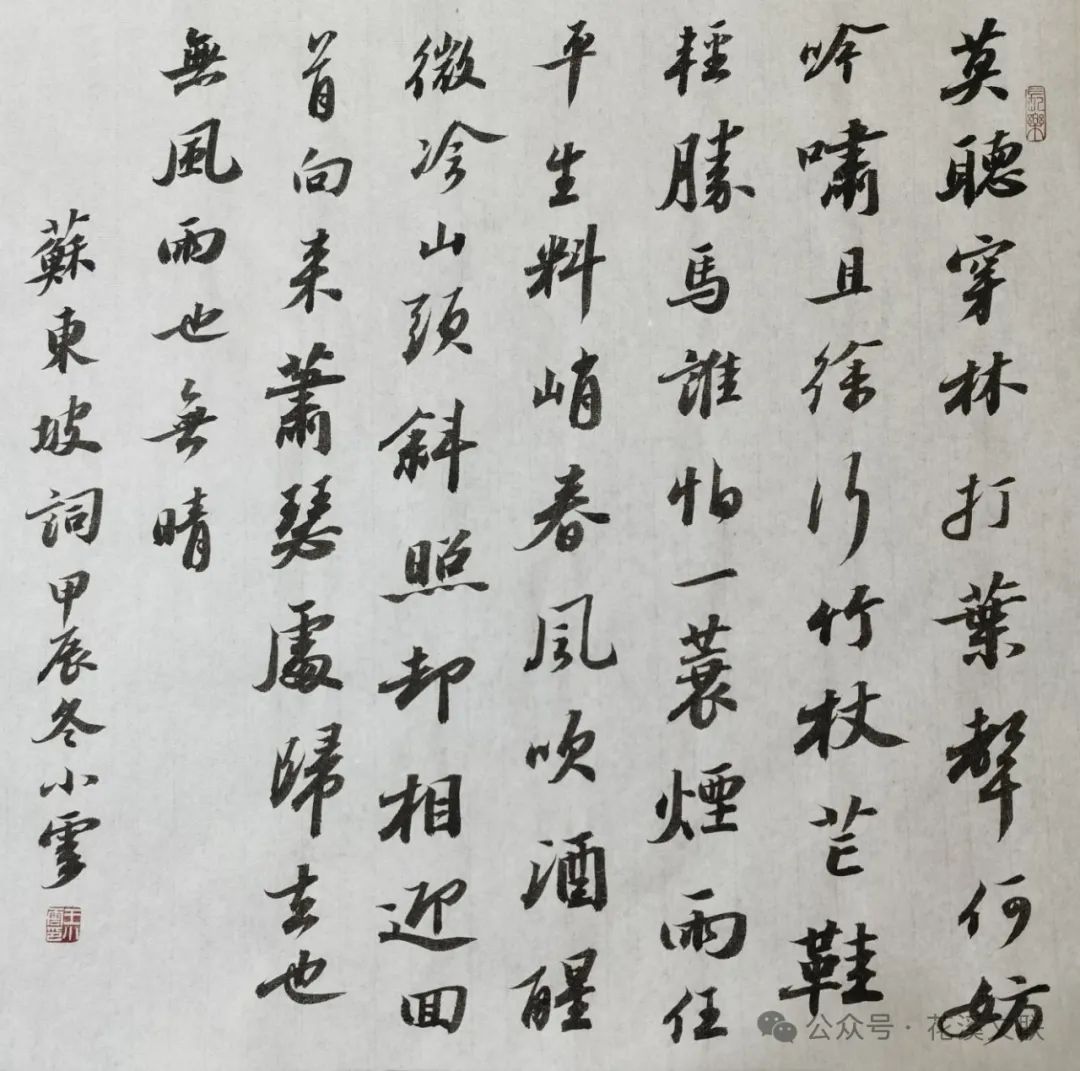 莫聽穿林打葉聲何妨
吟嘯且徐行竹杖芒鞋
輕勝馬誰怕一蓑煙雨任
平生料峭春風吹酒醒
微冷山頭斜照却相迎回
首向来蕭瑟處歸去也
無風雨也無晴
蘇東坡詞甲辰冬小雪
公众号·花溪文联